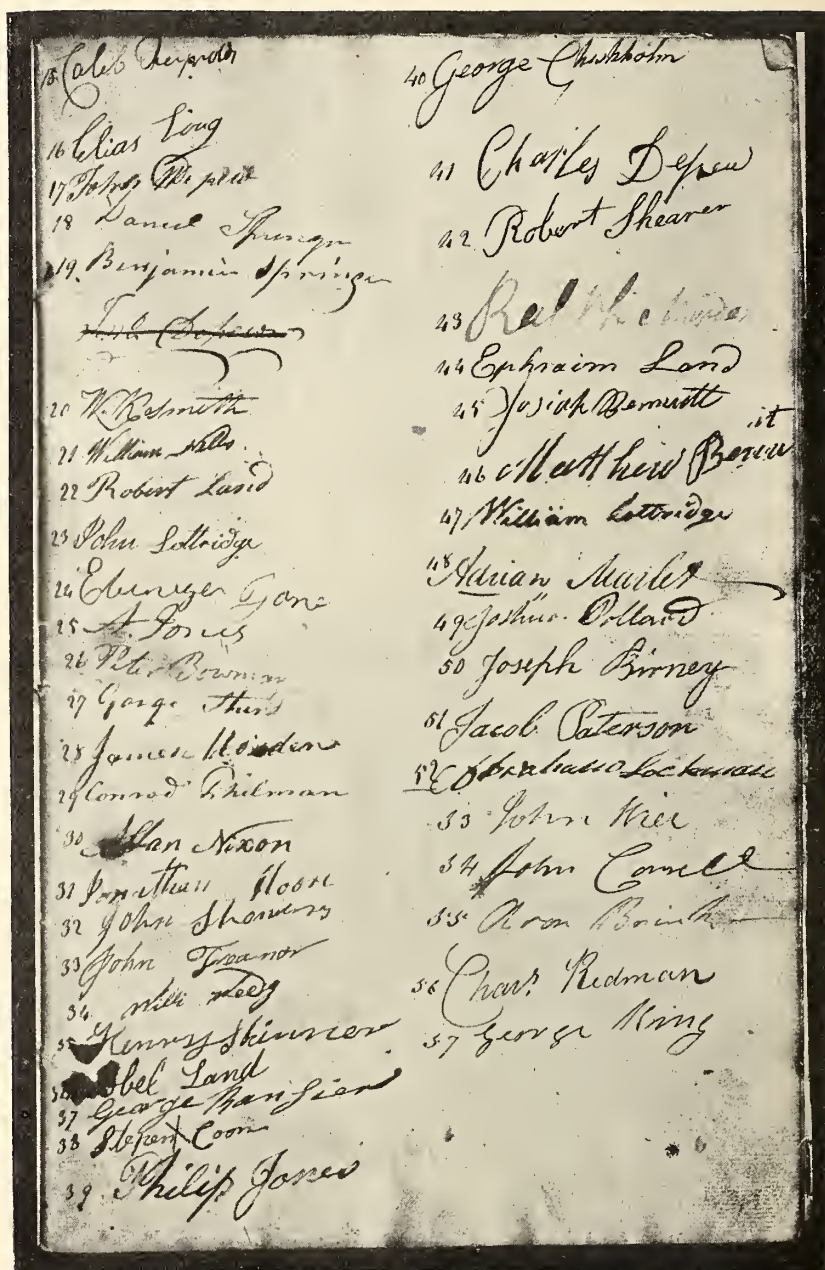 15 Caleb Reynolds
16 Elias Long
17 John Depew
18 Daniel Springer
19. Benjamin Springer
20 W. Kesmith
21 William Mills
22 Robert Land
23 John Lottridge
24 Ebenezer Jone
25 A. Jones
26 Peter Bowman
27 George
28 James
29 Conrod Philman
30 Allan Nixon
31 Jonathan Moore
32 John Showers
33 John Treanor
34
35 Henry Skinner
36 Abel Land
37 George Ransier
38 Stepen X Coon
39. Philip Jones
40 George Chishholm
41 Charles Depew
42. Robert Shearer
43
44 Ephraim Land
45 Josiah Bennitt
46 Matthew Bennit
47 William Lottridge
48 Adrian Marlet
49 Joshua Dollard
50 Joseph Birney
51 Jacob Paterson
52 Abraham Lockman
53 John Wier
54 John Cornell
55 Aron Brink
56 Chas. Redman
57 George King